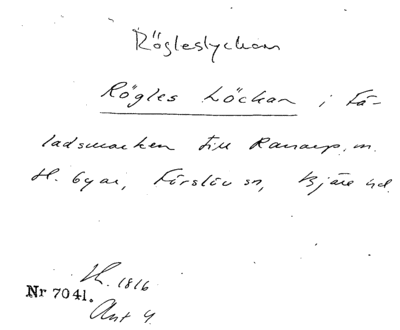 Rögleslyckan
Rögles Löckan i Få-
ladsmarken till Ranarp. m.
fl. byar, Förslöv sn, Bjäre hd.
H. 1816
Nr 7041.
Akt 4.